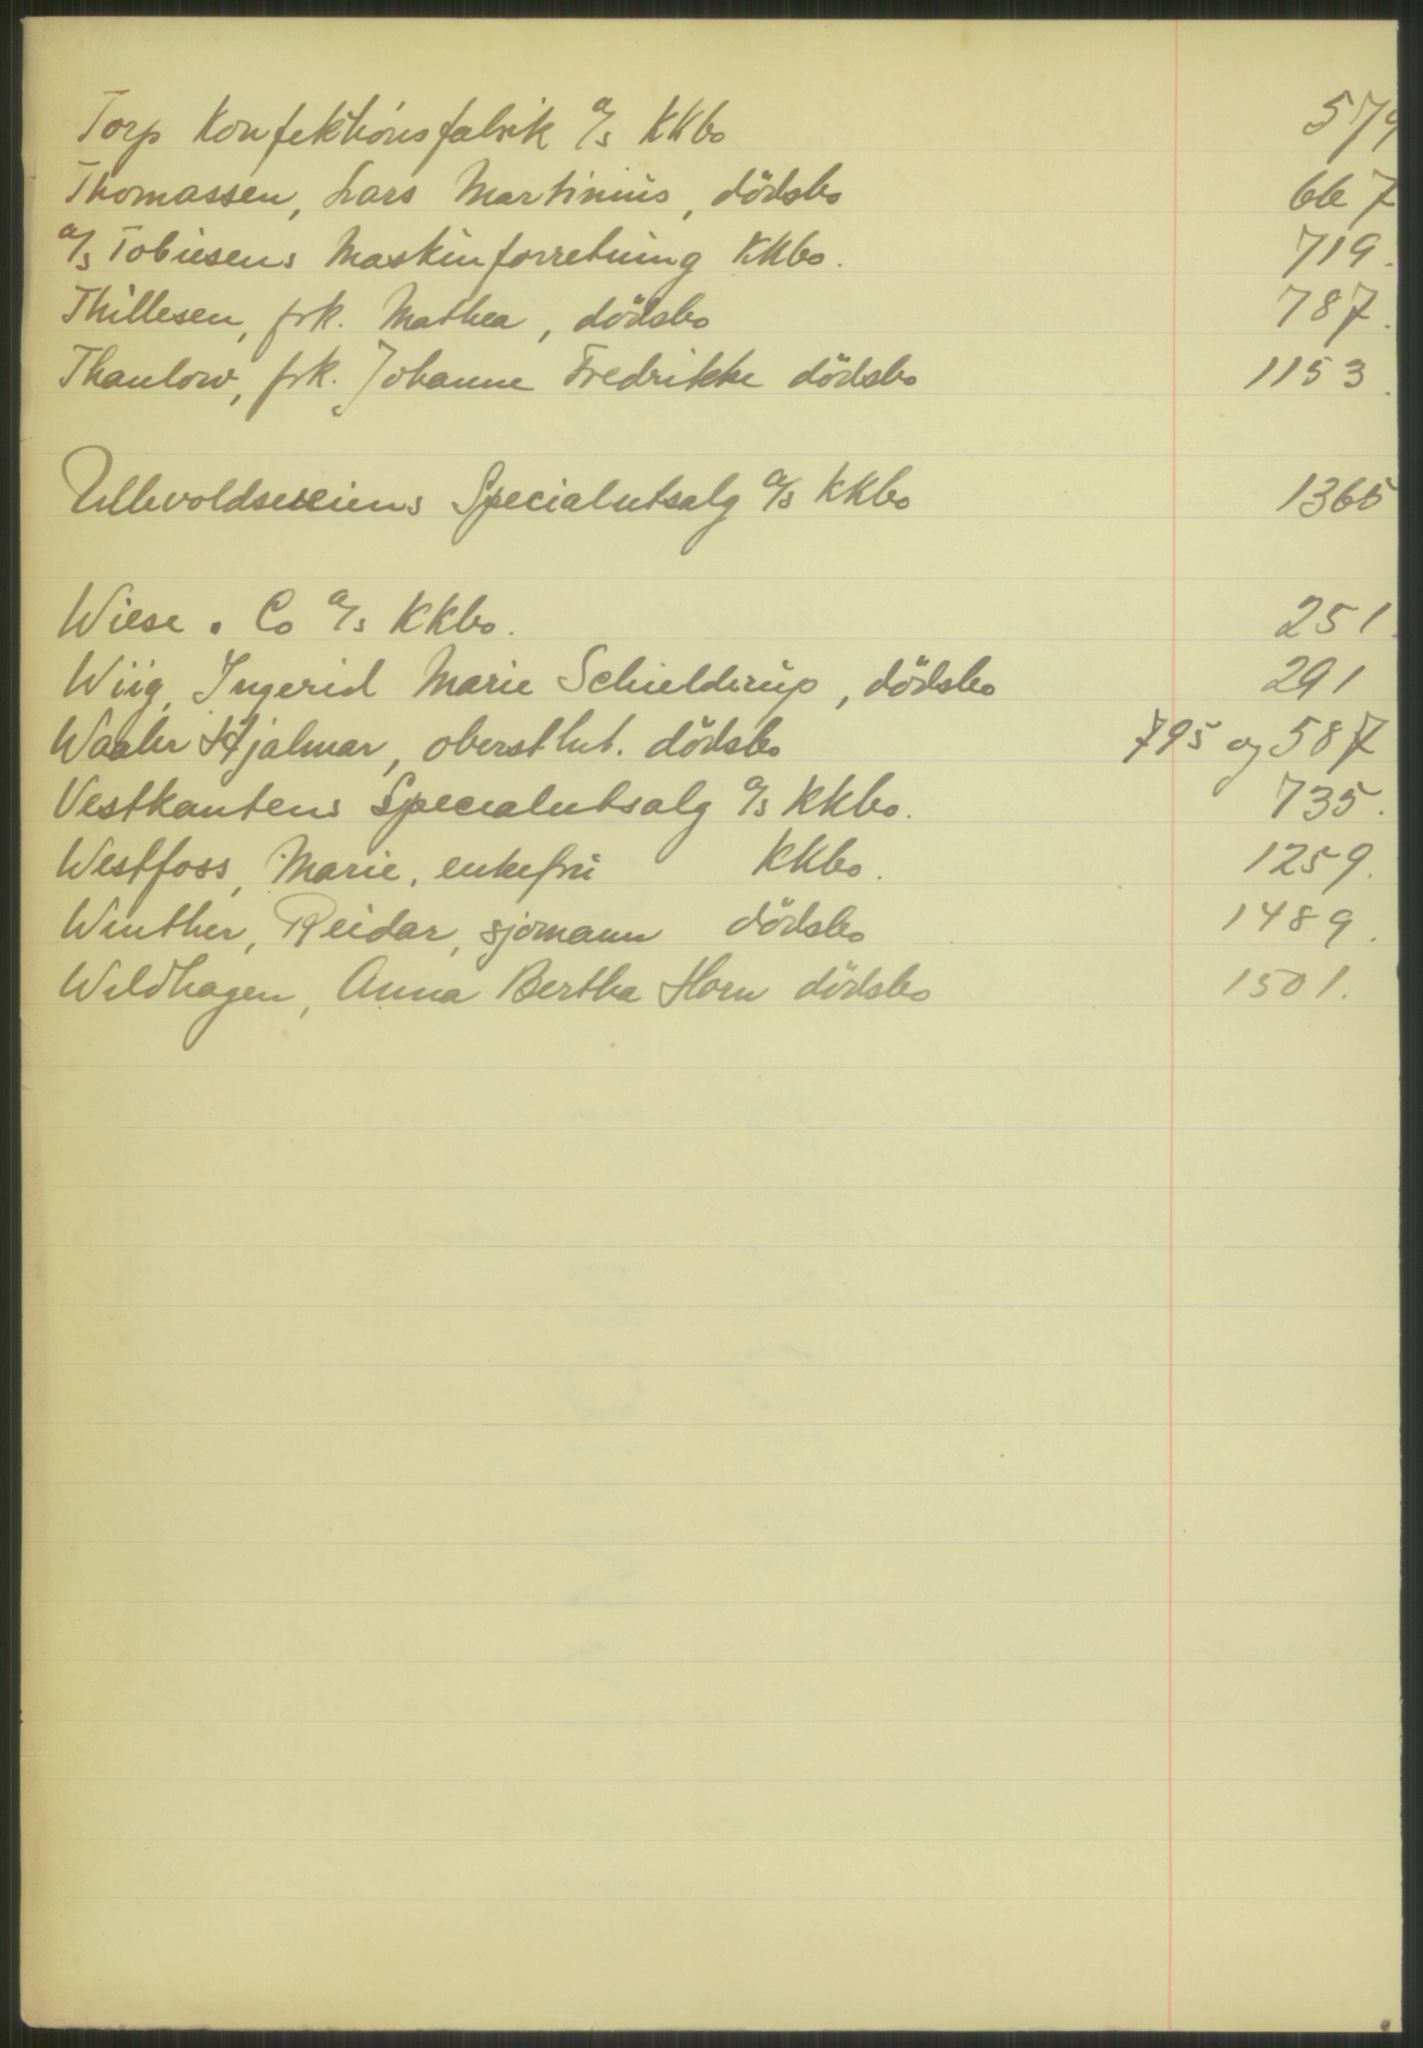 Torp Konfektionsfabrik a/s KKbo 579
Thomassen, Lars Martinius, dödsbo 667
a/s Tobiesens Maskinforretning KKbo. 719.
Thillesen, frk. Mathea, dödsbo 787.
Thaulow, frk. Johanne Fredrikke dödsbo 1153.
Ullevoldsveiens Specialutsalg a/s KKbo 1365
Wiese. Co a/s KKbo. 251.
Wiig, Ingerid Marie Schielderup, dödsbo 291
Waaler Hjalmar, oberstlut. dödsbo 795 og 587
Vestkantens Specialutsalg a/s KKbo. 735.
Westfoss, Marie, enkefru KKbo. 1259.
Winther, Reidar, sjömann dödsbo 1489.
Wildhagen, Anna Bertha Horn dödsbo 1501.